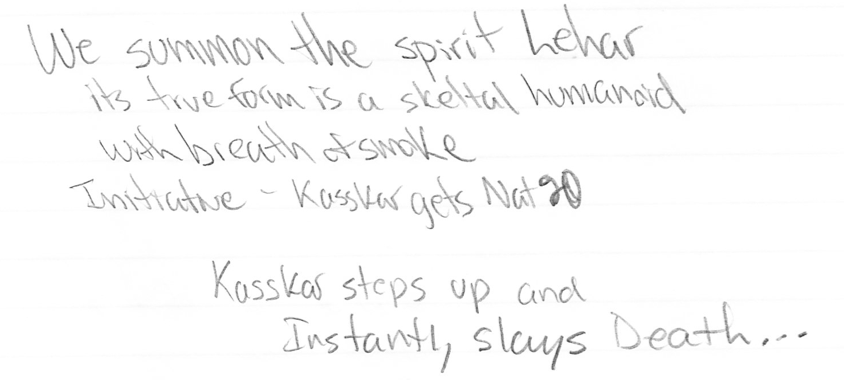 We summon the spirit Lehar
its true form is a skeltal humanoid
with breath of smoke
Initiative - Kasskar gets Nat 20
Kasskar steps up and
Instantly slays Death...